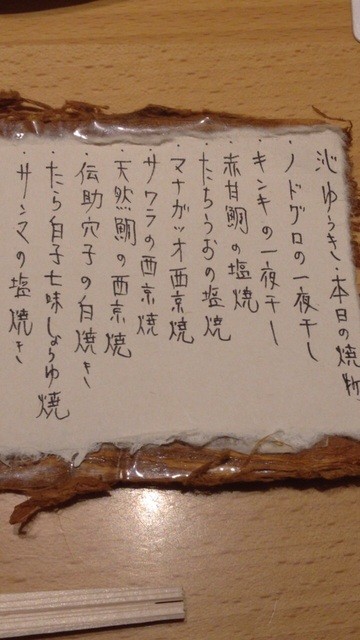 沁ゆうき・本日の焼物
・ノドグロの一夜干し
・キンキの一夜干し
・赤甘鯛の塩焼
・たちうおの塩焼
・マナガツオ西京焼
・サワラの西京焼
・天然鰤の西京焼
・伝助穴子の白焼き
・たら白子七味しょうゆ焼
・サンマの塩焼き